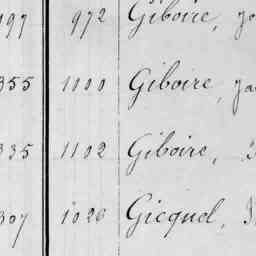 197 972 Giboire,
355 1000 Giboire,
335 1102 Giboire,
307 1026 Gicquel,